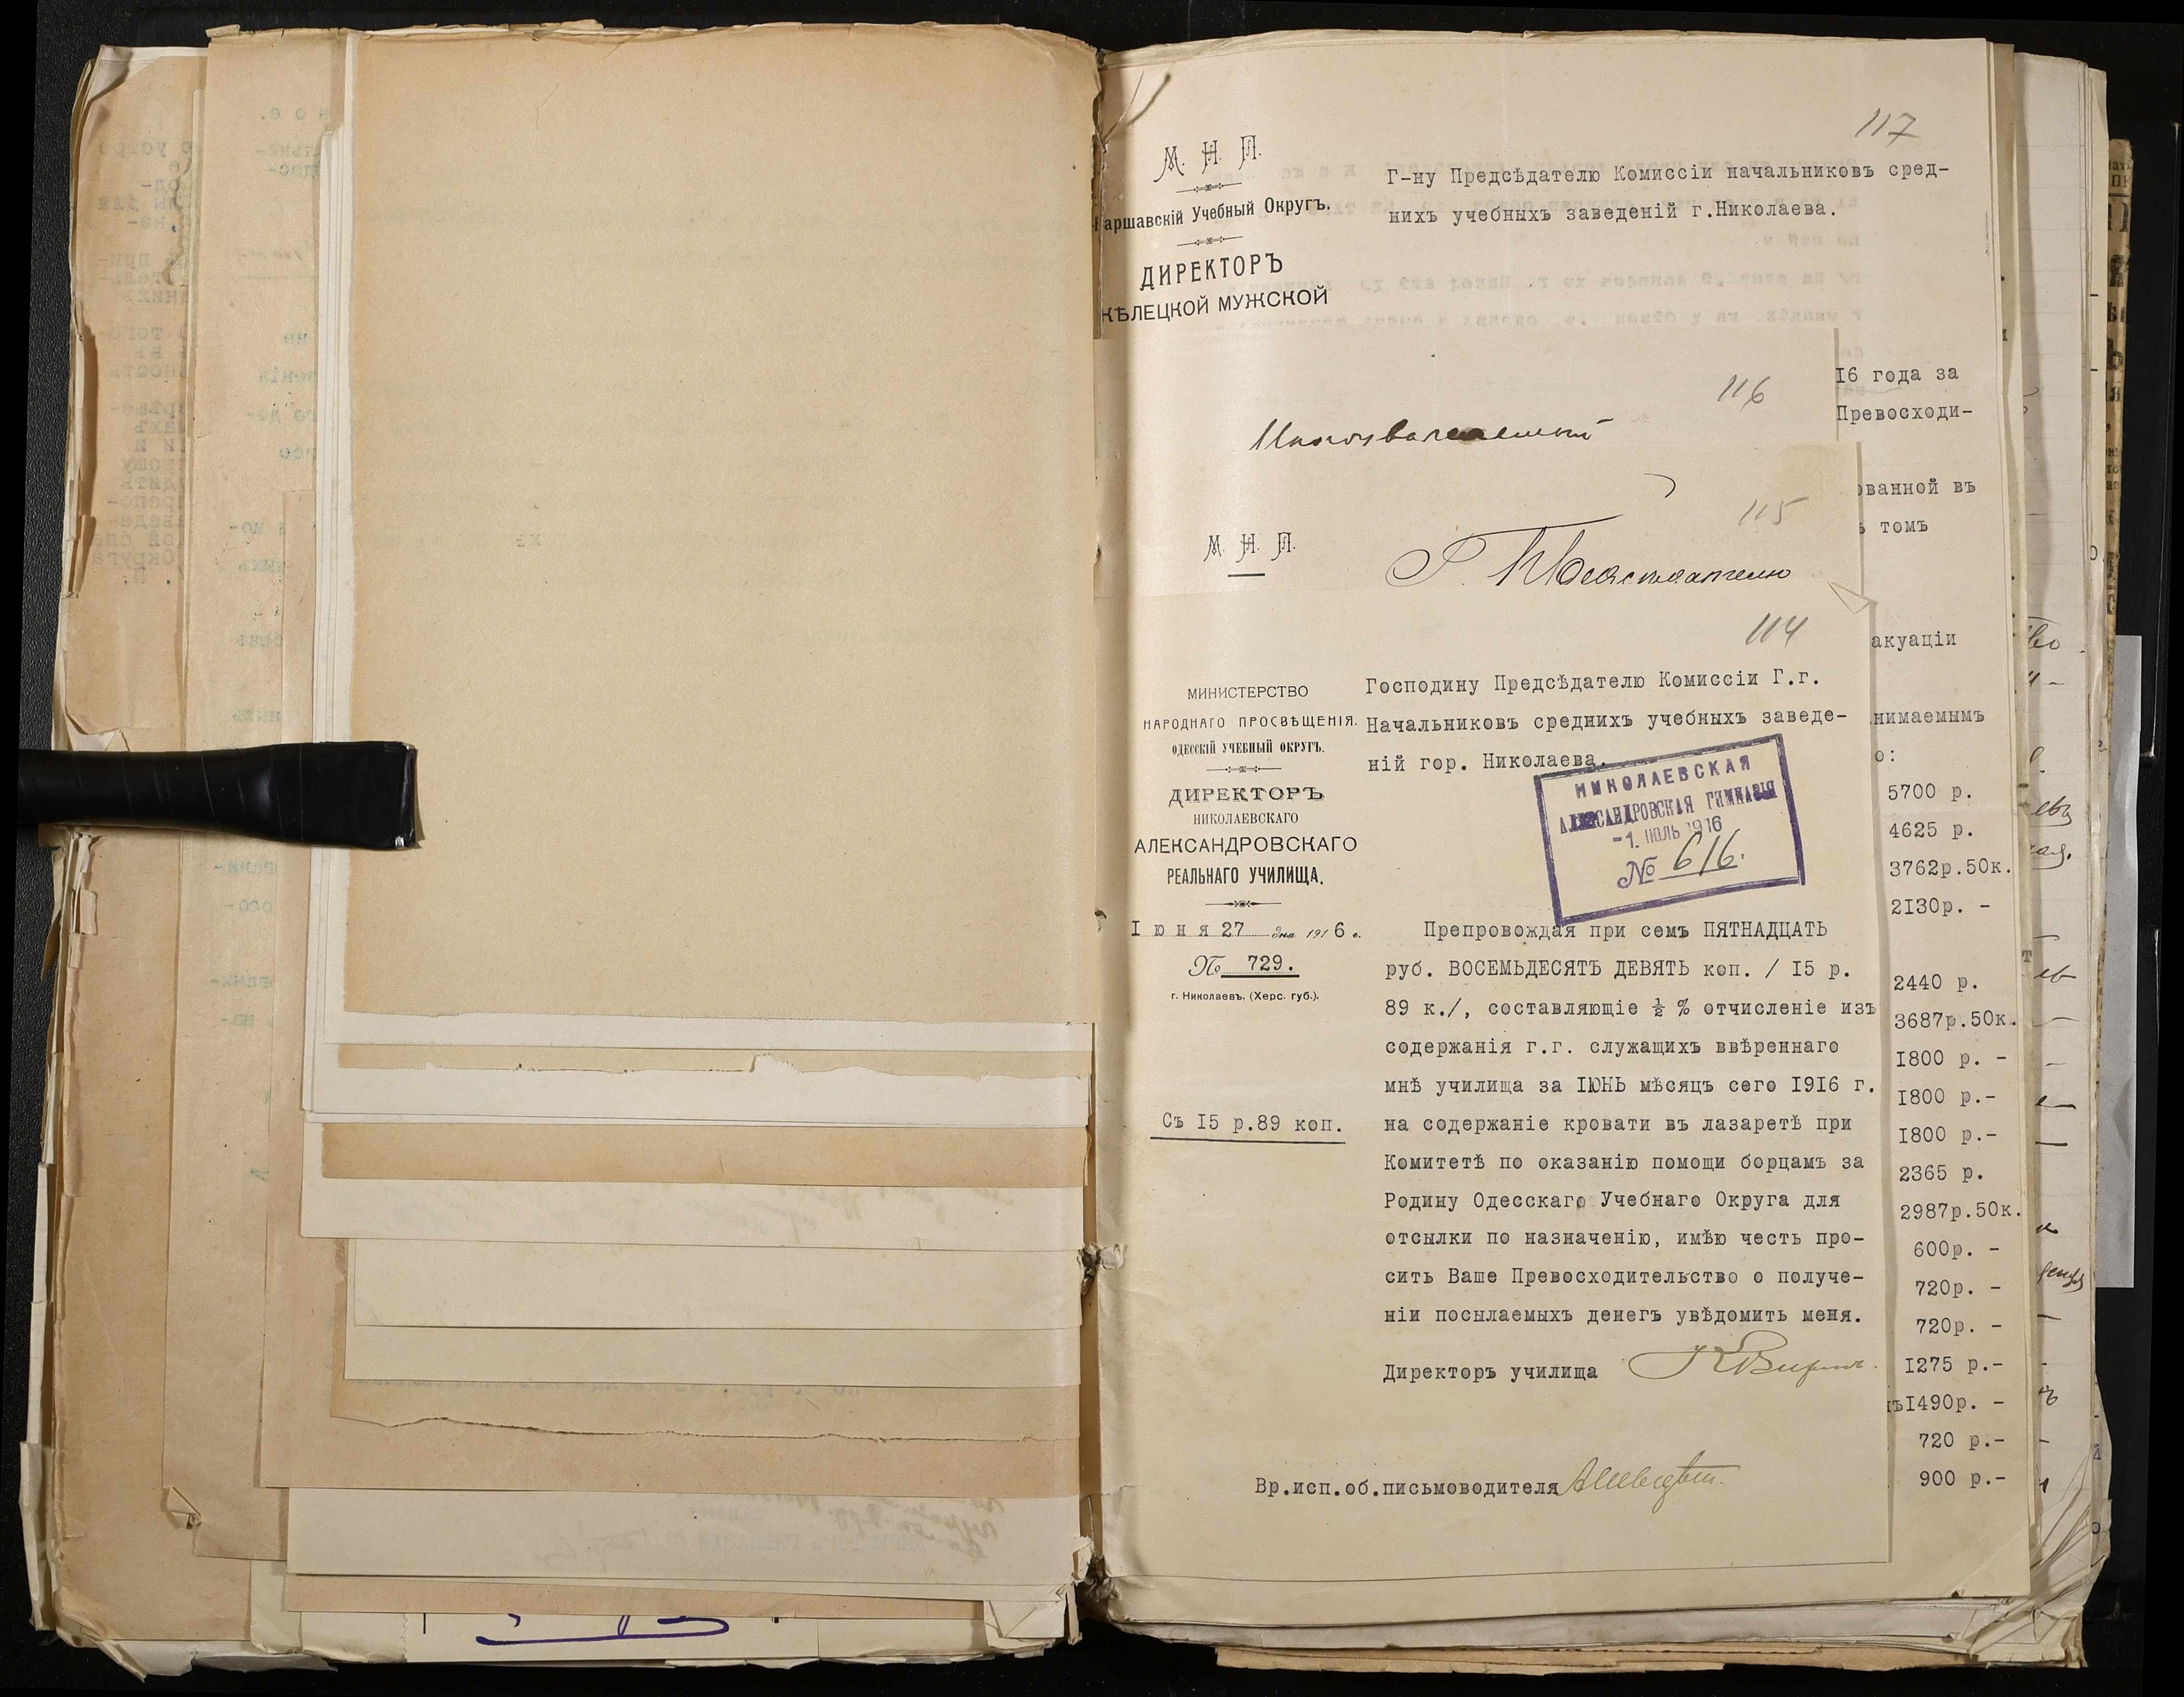 117
М. Н. П.
Варшавскій Учебный Округъ.
ДИРЕКТОРЪ
КѢЛЕЦКОЙ МУЖСКОЙ
Г-ну Предсѣдателю Комиссіи начальниковъ сред-
нихъ учебныхъ заведеній г.Николаева.
I6 года за
Превосходи-
ованной въ
томъ
акуаціи
нимаемымъ
о:
5700 р.
4625 р.
3762р.50к.
2I30р. -
2440 р.
3687р.50к.
I800 р. -
I800 р.-
I800 р.-
2365 р.
2987р.50к.
600р. -
720р. -
720р. -
I275 р.-
I490р. -
720 р.-
900 р.-
116
Многоуважаемый
115
М. Н. П.
Г. Предсѣдателю
114
МИНИСТЕРСТВО
НАРОДНАГО ПРОСВѢЩЕНІЯ.
ОДЕССКІЙ УЧЕБНЫЙ ОКРУГЪ.
ДИРЕКТОРЪ
НИКОЛАЕВСКАГО
АЛЕКСАНДРОВСКАГО
РЕАЛЬНАГО УЧИЛИЩА.
I ю н я 27 дня 1916 г.
№ 729.
г. Николаевъ, (Херс. губ.).
Съ I5 р.89 коп.
Господину Предсѣдателю Комиссіи Г.г.
Начальниковъ среднихъ учебныхъ заведе-
ній гор. Николаева.
НИКОЛАЕВСКАЯ
АЛЕКСАНДРОВСКАЯ ГИМНАЗІЯ
-1. ІЮЛЬ 1916
№ 616.
Препровождая при семъ ПЯТНАДЦАТЬ
руб. ВОСЕМЬДЕСЯТЪ ДЕВЯТЬ коп. / I5 р.
89 к./, составляющіе ½ % отчисленіе изъ
содержанія г.г. служащихъ ввѣреннаго
мнѣ училища за IЮНЬ мѣсяцъ сего I9I6 г.
на содержаніе кровати въ лазаретѣ при
Комитетѣ по оказанію помощи борцамъ за
Родину Одесскаго Учебнаго Округа для
отсылки по назначенію, имѣю честь про-
сить Ваше Превосходительство о получе-
ніи посылаемыхъ денегъ увѣдомить меня.
Директоръ училища
Вр.исп.об.письмоводителя